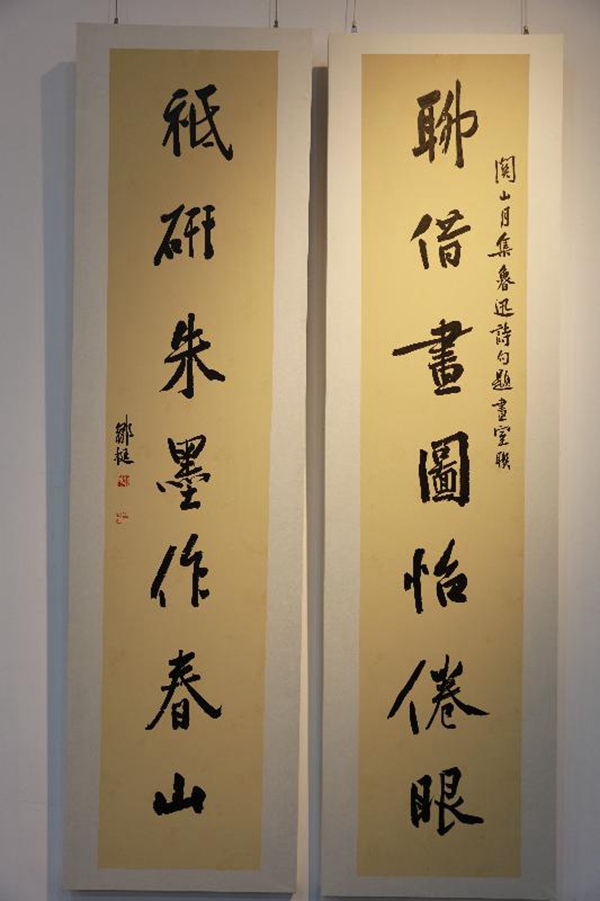 聊借畫圖怡倦眼
關山月集魯迅詩句題畫室聯
祗研朱墨作春山
鄒挺